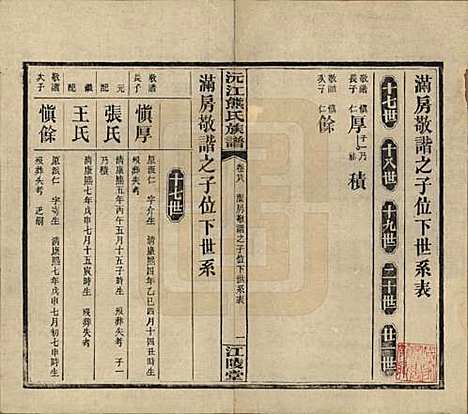 滿房敬諧之子位下世系表
十七世 十八世 十九世 二十世 廿一世
敬諧長子 慎厚 子一乃積
敬諧次子 慎餘
沅江熊氏族譜 滿房敬諧之子位下世系表 一 江陵堂
滿房敬諧之子位下世系
十七世
敬諧長子 慎厚 原派仁 字介生 清康熙四年乙巳四月十四丑時生 歿葬失考
元配 張氏 清康熙五年丙午五月十五子時生 歿葬失考 子一
乃積
繼配 王氏 清康熙七年戊申七月十五寅時生 歿葬失考
敬諧次子 慎餘 原派仁 清康熙七年戊申七月初七申時生 歿葬失考